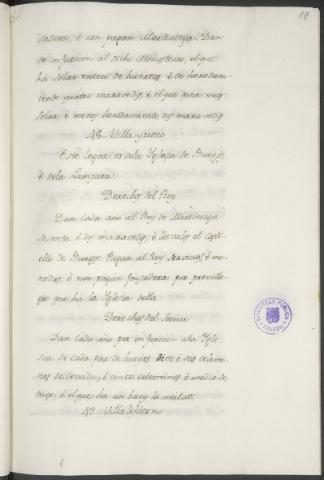 19
sadera é non pagan Martiniega. Dan
de infurcion al dicho Monesterio, el que
ha solar entero de huertas é de heredam-
iento quatro maravedis, é el que avia mas
solar é menos heredamiento dos maravedis
48 Villa
Este logar es de la Yglesia de Burgos,
é dela Lampara.
Derechos del Rey
Dan cada año al Rey de Martiniega
sesenta é dos maravedis, é levalos el casti-
ello de Burgos. Pagan al Rey servicios é mo-
nedas, é non pagan fonsadera por preville-
gio que ha la Yglesia della
Derechos del Señor
Dan cada año por infurcion ala Ygle-
sia de cada par de bueyes diez é seis celemi-
nes de cevada, é cinco celemines é medio de
trigo, é el que ha un buey la meitad.
49 Villa
BIBLIOTECA PUBLICA
TOLEDO